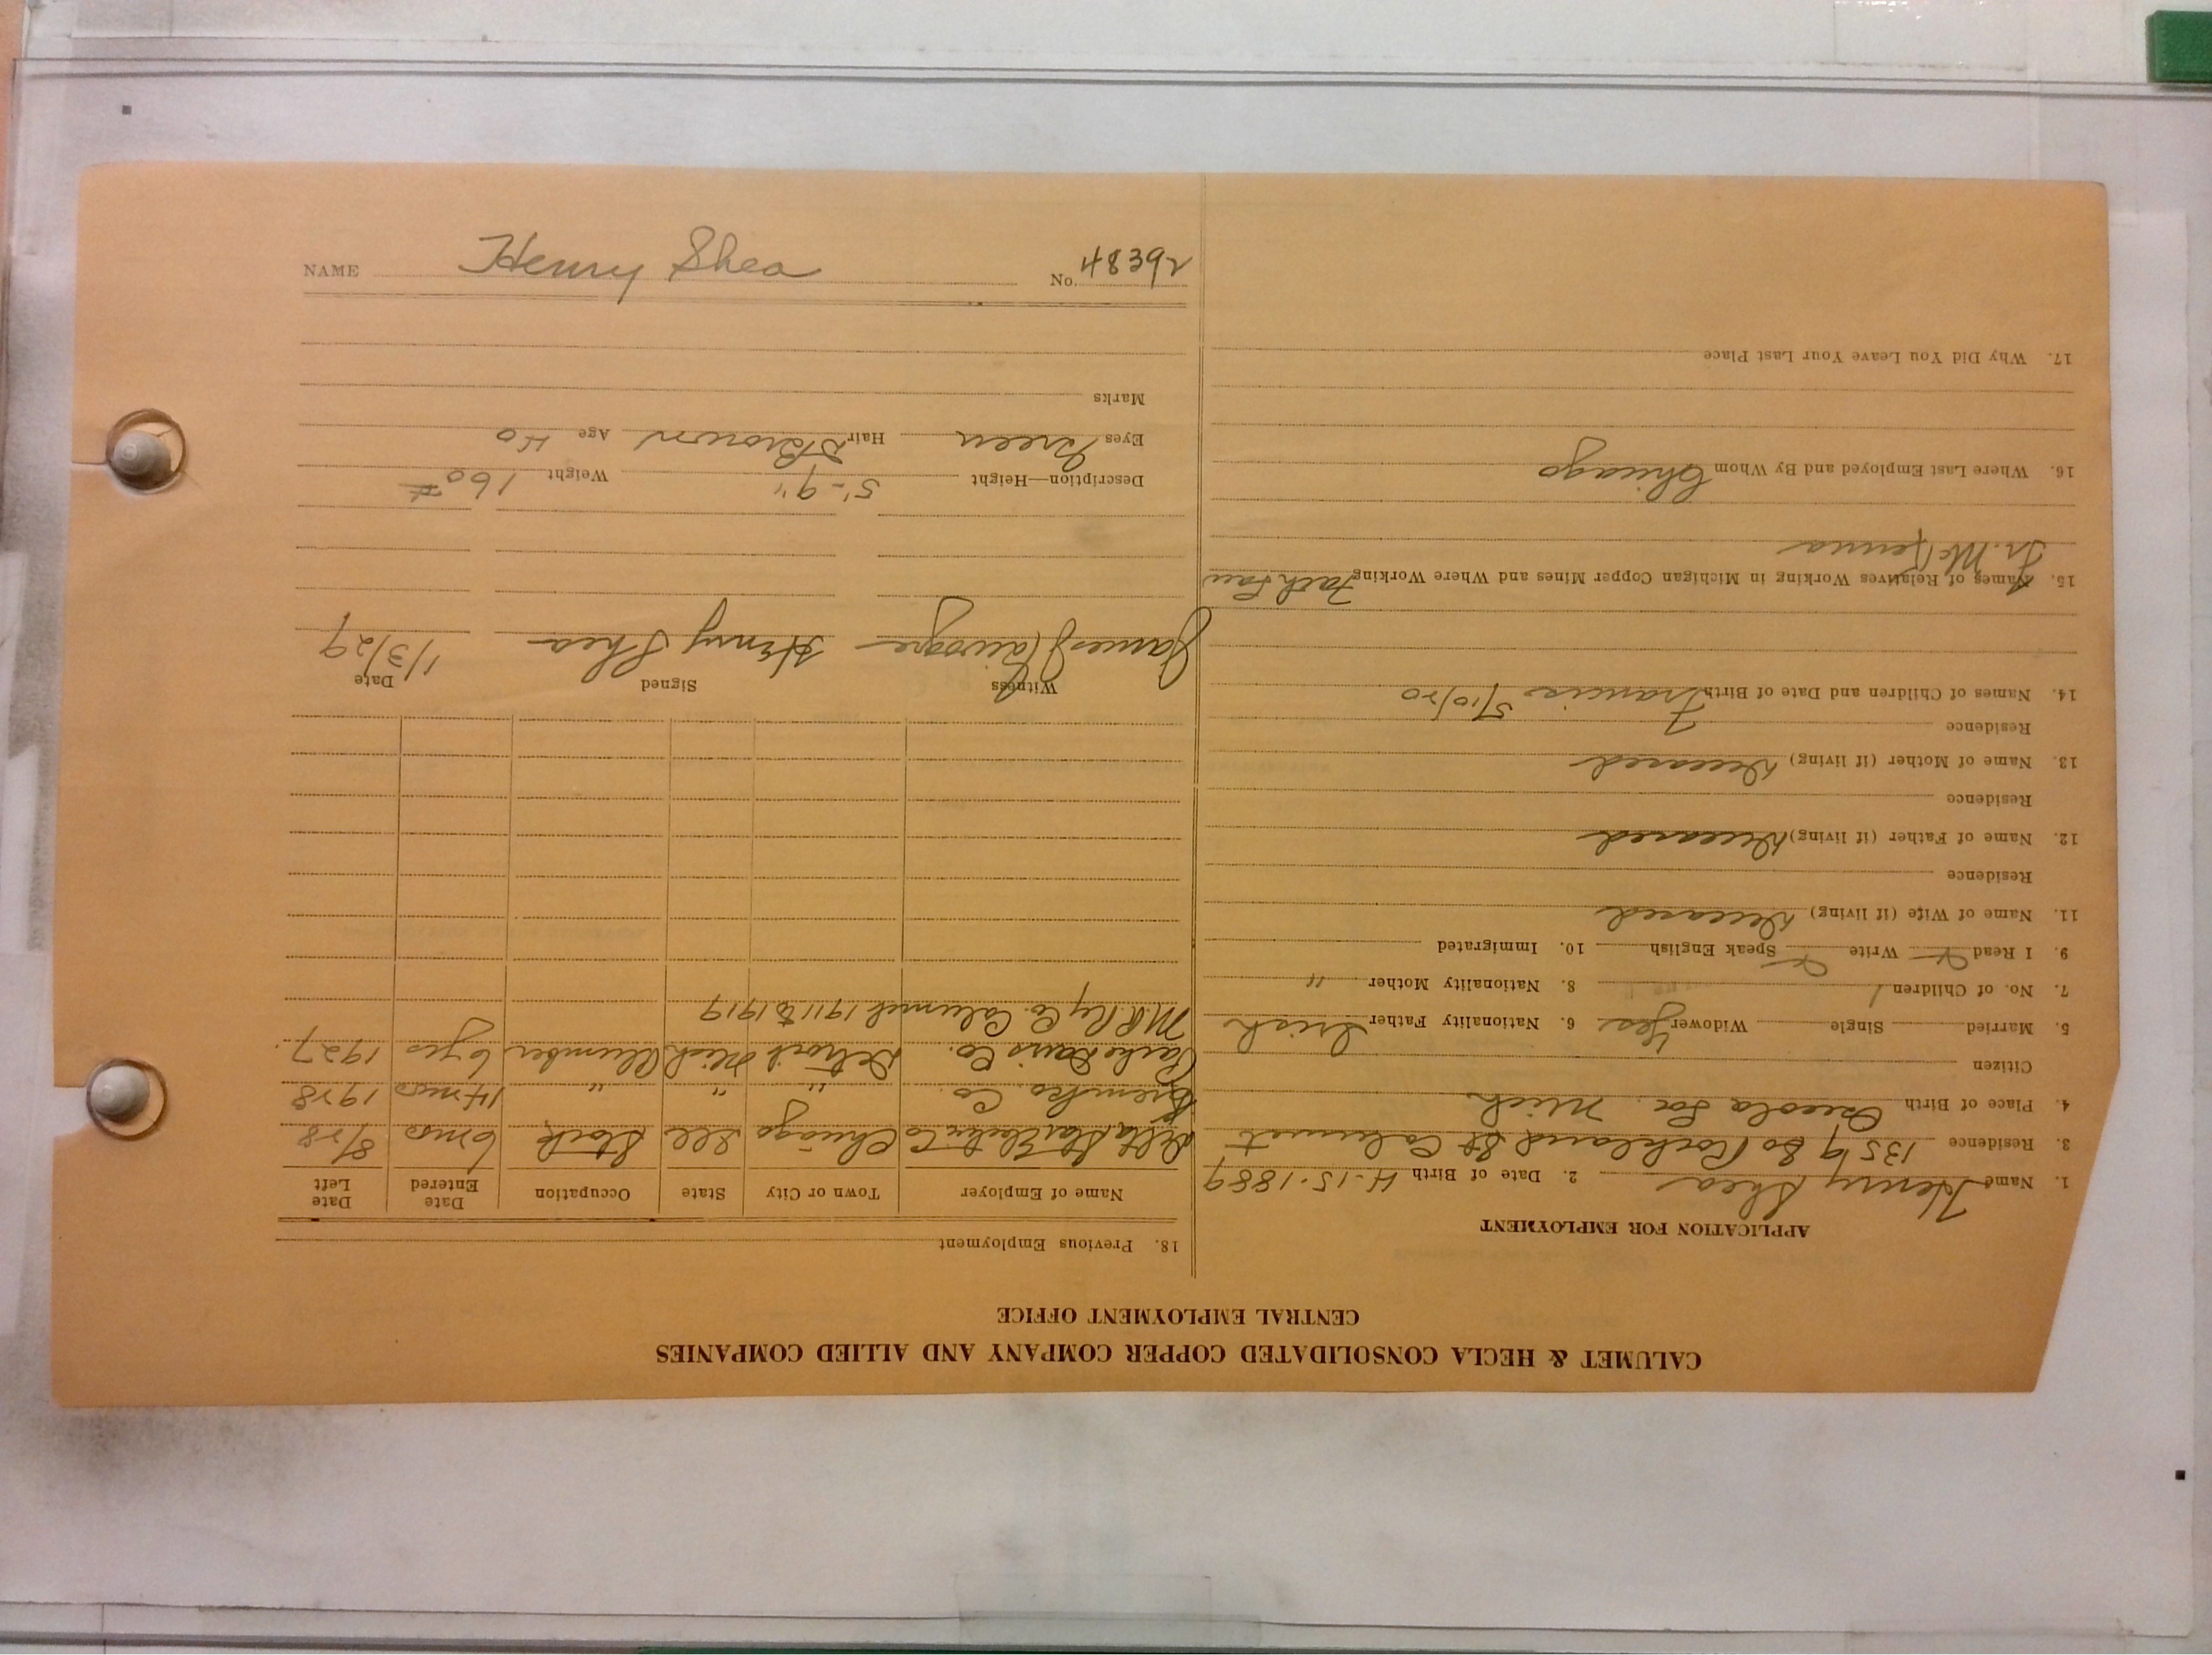 CALUMET & HECLA CONSOLIDATED COPPER COMPANY AND ALLIED COMPANIES
CENTRAL EMPLOYMENT OFFICE
APPLICATION FOR EMPLOYMENT
1. Name Henry Shea 2. Date of Birth 4-15-1889
3. Residence 1359 So Rockland St Calumet
4. Place of Birth Osceola Loc. Mich
Citizen
5. Married Single Widower Yes 6. Nationality Father Irish
7. No. of Children 1 8. Nationality Mother "
9. I Read Write Speak English 10. Immigrated
11. Name of Wife (if living) Deceased
Residence
12. Name of Father (if living) Deceased
Residence
13. Name of Mother (if living) Deceased
Residence
14. Names of Children and Date of Birth Francis 5/10/20
15. Names of Relatives Working in Michigan Copper Mines and Where Working
McKenna
16. Where Last Employed and By Whom Chicago
17. Why Did You Leave Your Last Place
18. Previous Employment
Name of Employer Town or City State Occupation Date Entered Date Left
Delta Star Electric Co Chicago Ill Stock 6 mos 8/28
Co. " " " 4 mos 1928
Parke Davis Co. Detroit Mich Plumber 6 yrs 1927.
M.R. Ry Co. Calumet 1911 to 1919
Witness Signed Date
James Henry Shea 1/3/29
Description—Height 5'-9" Weight 160 #
Eyes Green Hair D Brown Age 40
Marks
NAME Henry Shea No. 48392